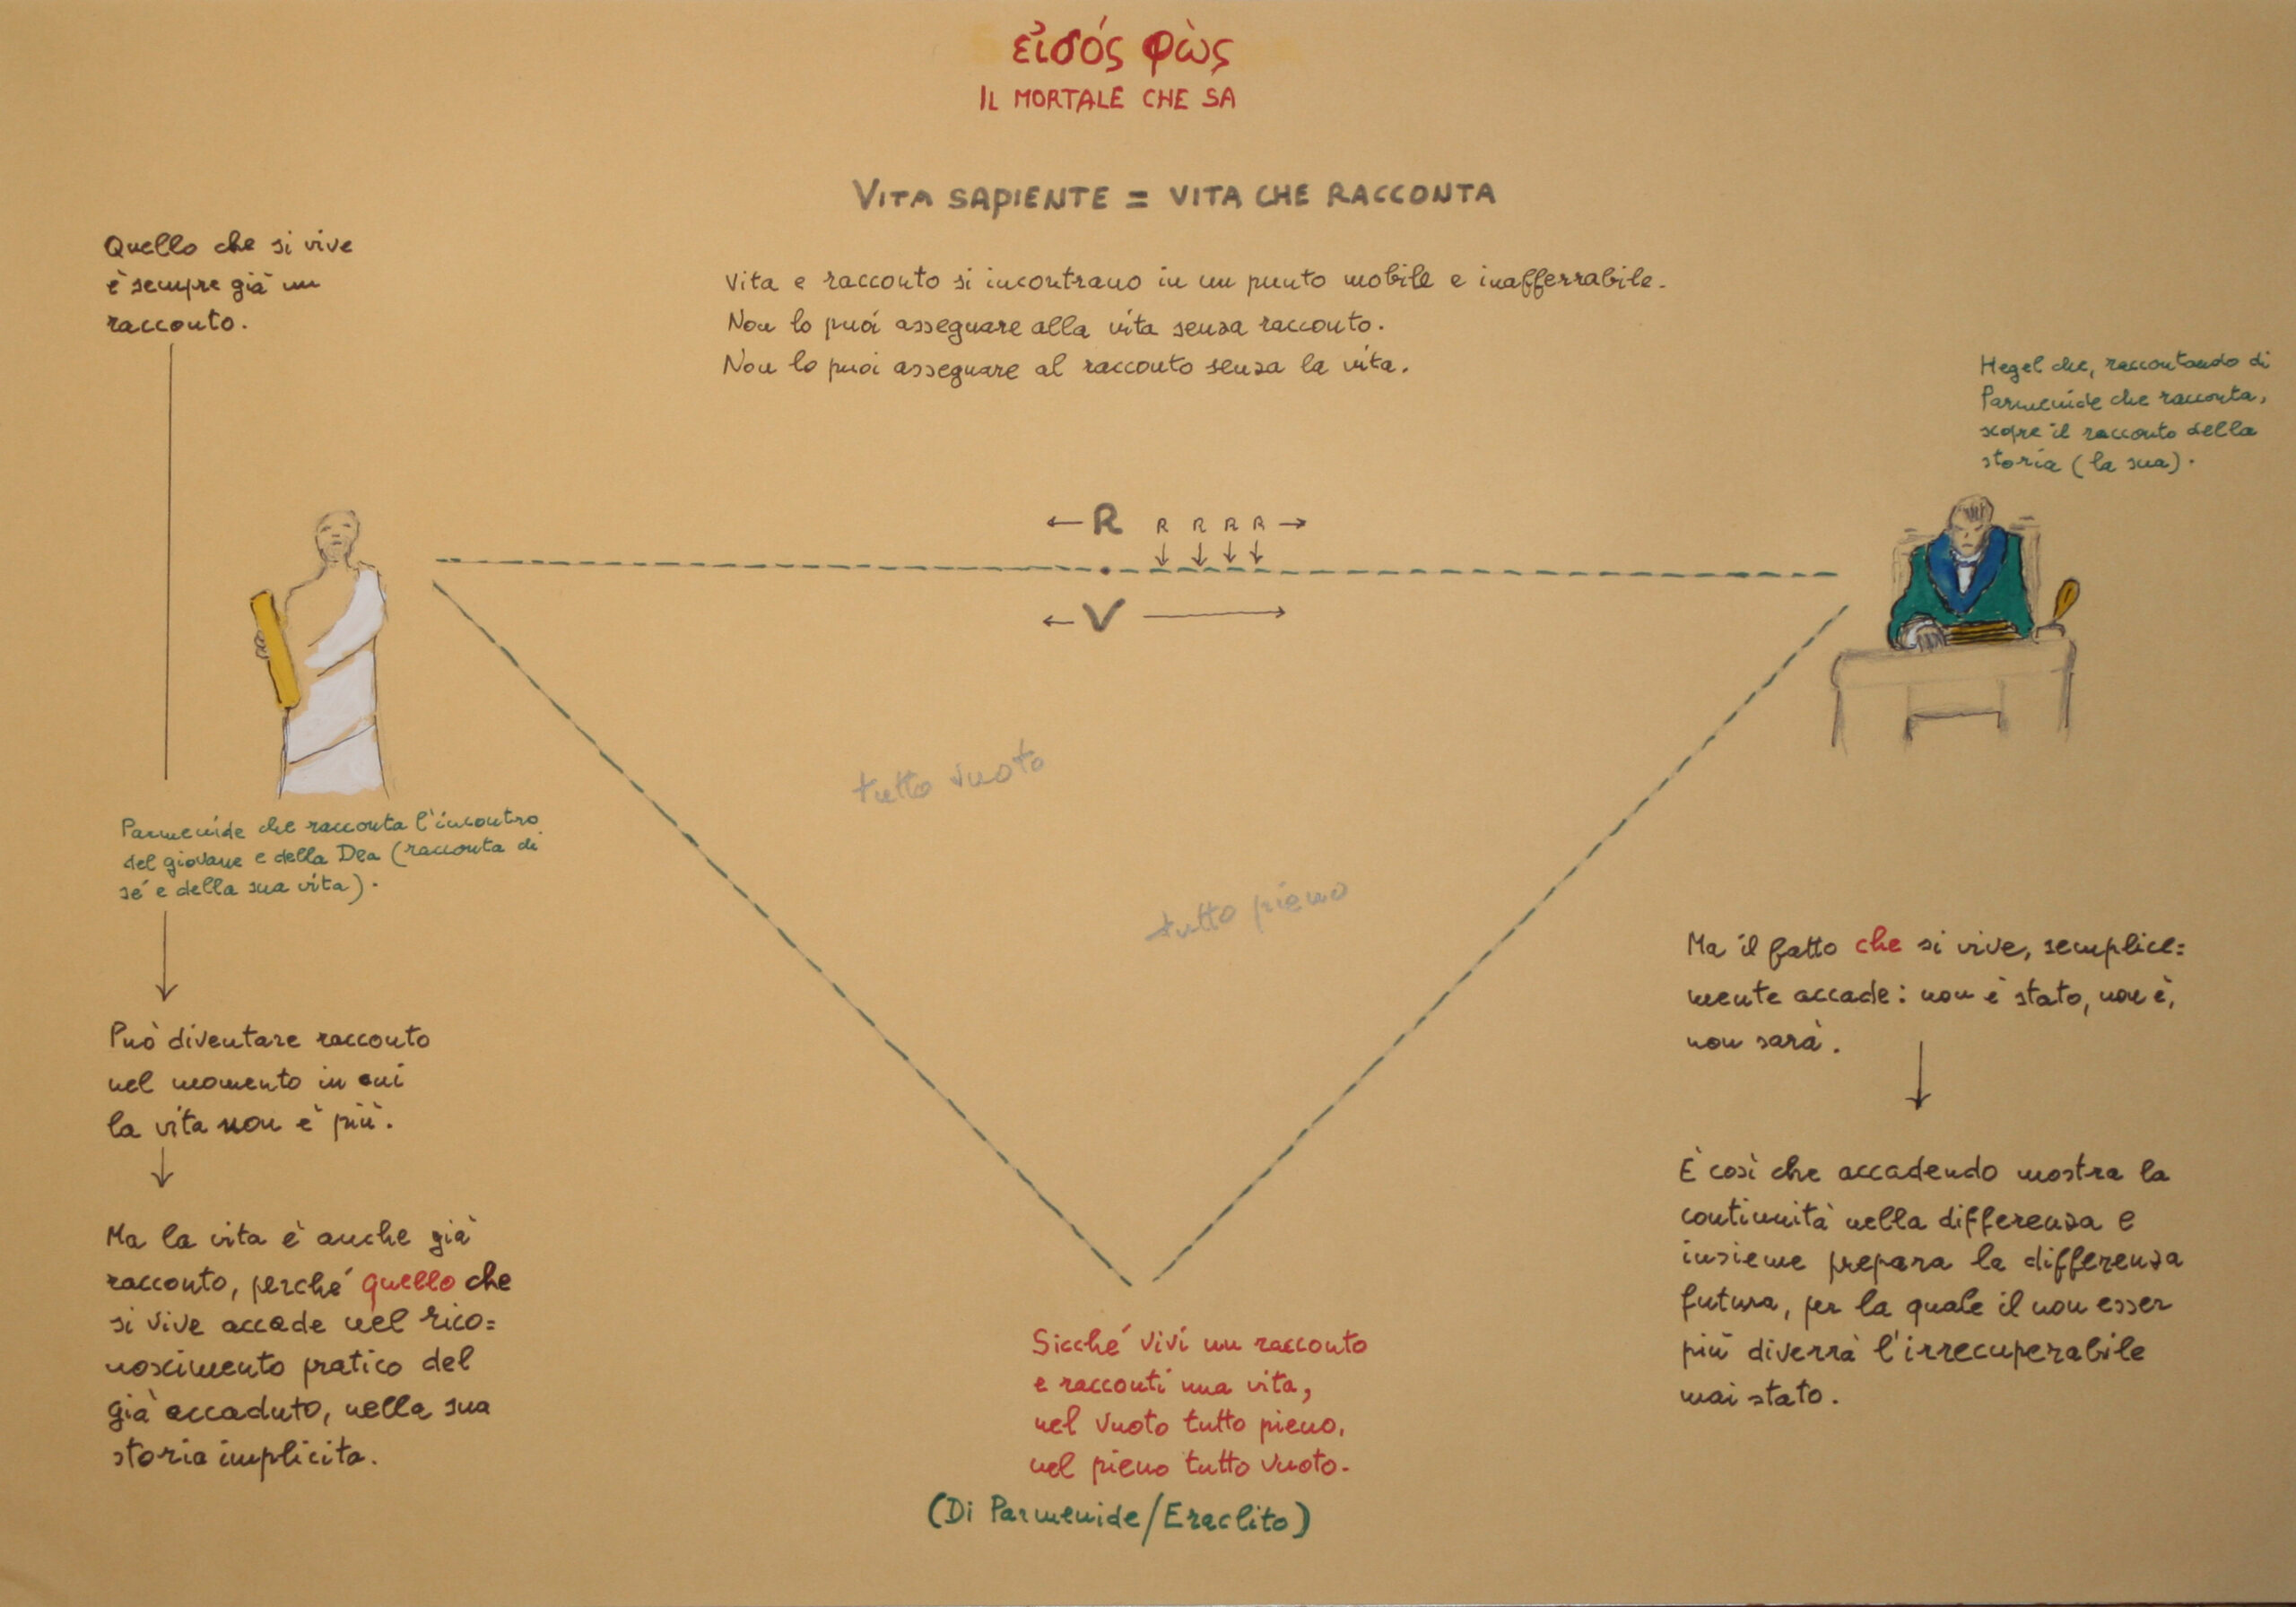 εἰδός φὼς
IL MORTALE CHE SA
VITA SAPIENTE = VITA CHE RACCONTA
Vita e racconto si incontrano in un punto mobile e inafferrabile.
Non lo puoi assegnare alla vita senza racconto.
Non lo puoi assegnare al racconto senza la vita.
Quello che si vive
è sempre già un
racconto.
Parmenide che racconta l'incontro
del giovane e della Dea (racconta di
sé e della sua vita).
Può diventare racconto
nel momento in cui
la vita non è più.
Ma la vita è anche già
racconto, perché quello che
si vive accade nel rico=
noscimento pratico del
già accaduto, nella sua
storia implicita.
← R R R R R →
← V →
tutto vuoto
tutto pieno
Sicché vivi un racconto
e racconti una vita,
nel vuoto tutto pieno,
nel pieno tutto vuoto.
(Di Parmenide/Eraclito)
Hegel che, raccontando di
Parmenide che racconta,
scopre il racconto della
storia (la sua).
Ma il fatto che si vive, semplice=
mente accade: non è stato, non è,
non sarà.
È così che accadendo mostra la
continuità nella differenza e
insieme prepara la differenza
futura, per la quale il non esser
più diverrà l'irrecuperabile
mai stato.